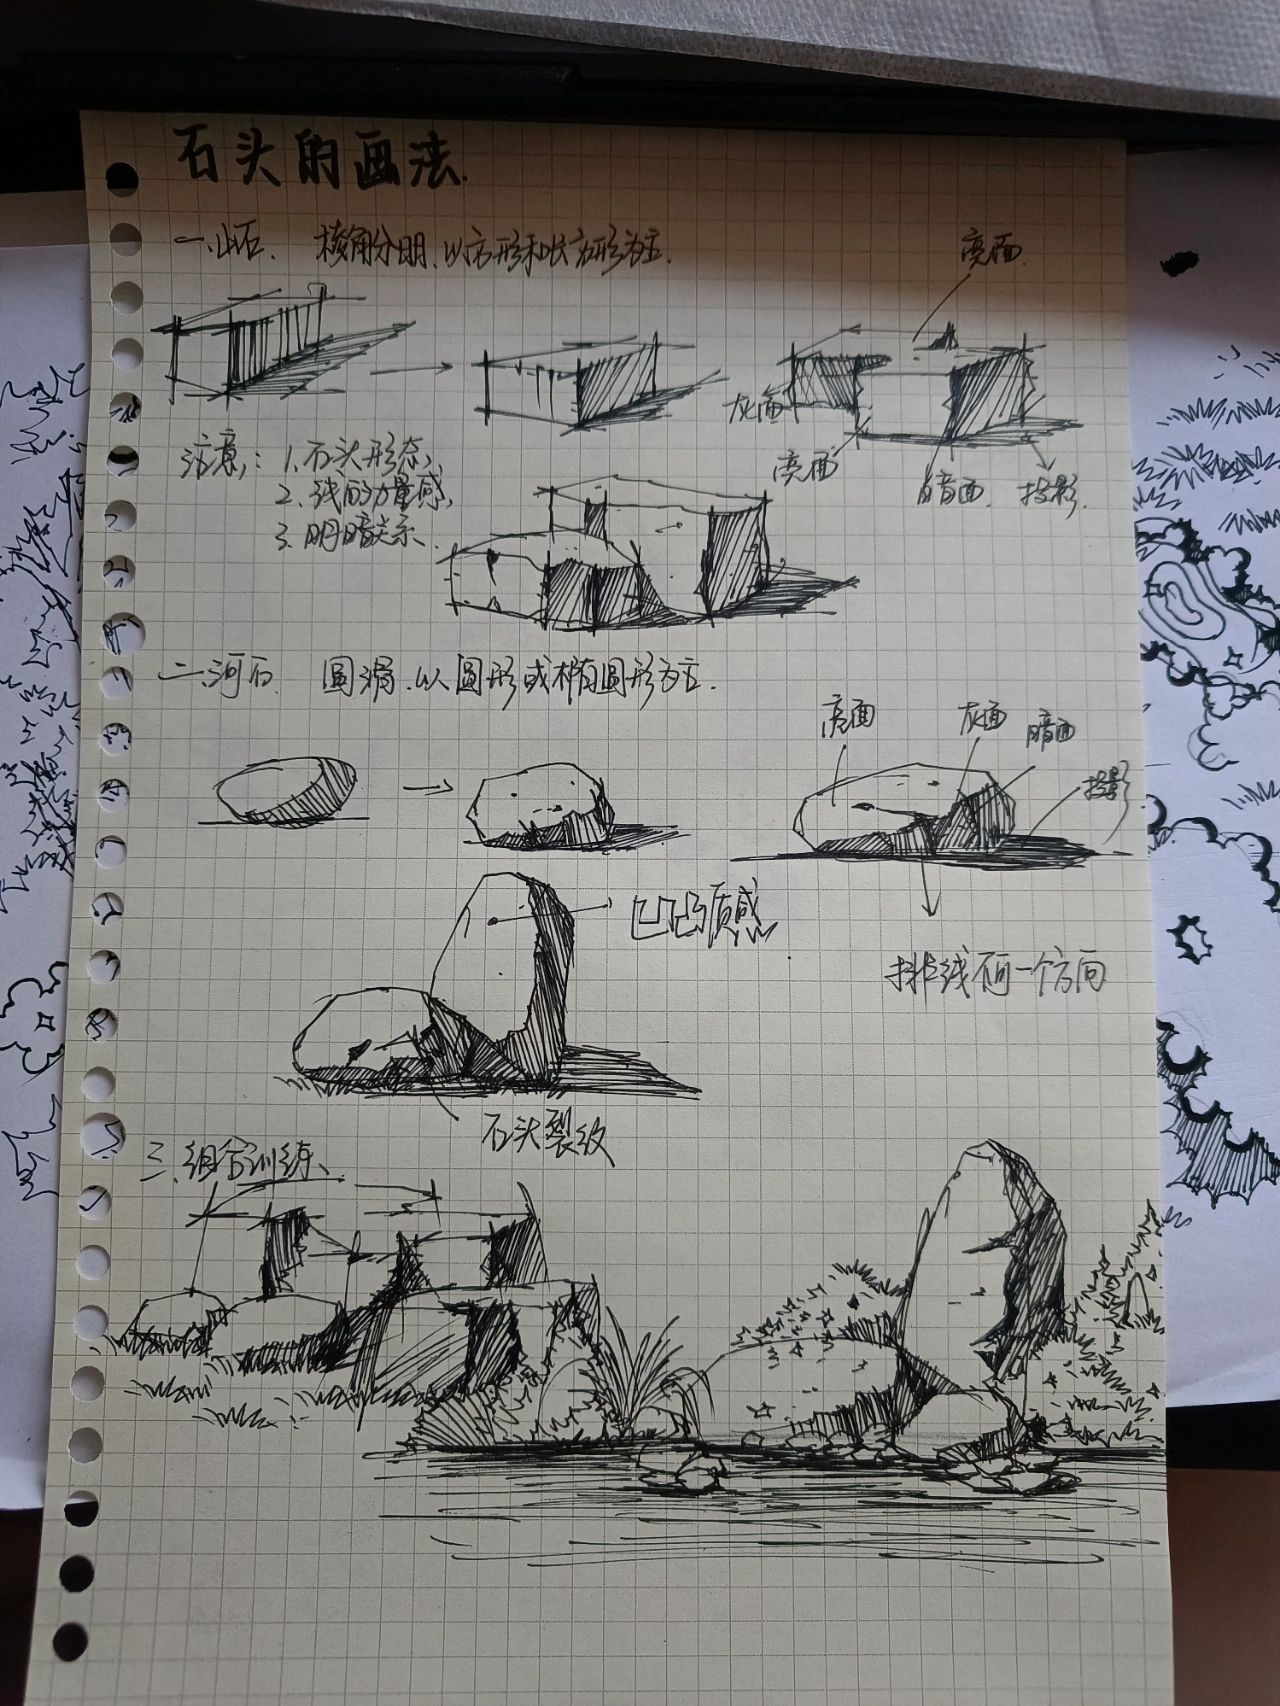 石头的画法.
一.山石. 棱角分明.以方形和长方形为主.
亮面.
灰面
亮面
暗面. 投影.
注意: 1.石头形态,
2.线的力量感,
3.明暗关系.
二.河石. 圆滑.以圆形或椭圆形为主.
亮面
灰面
暗面
投影
凹凸质感
排线不同一个方向
石头裂纹
三.组合训练、